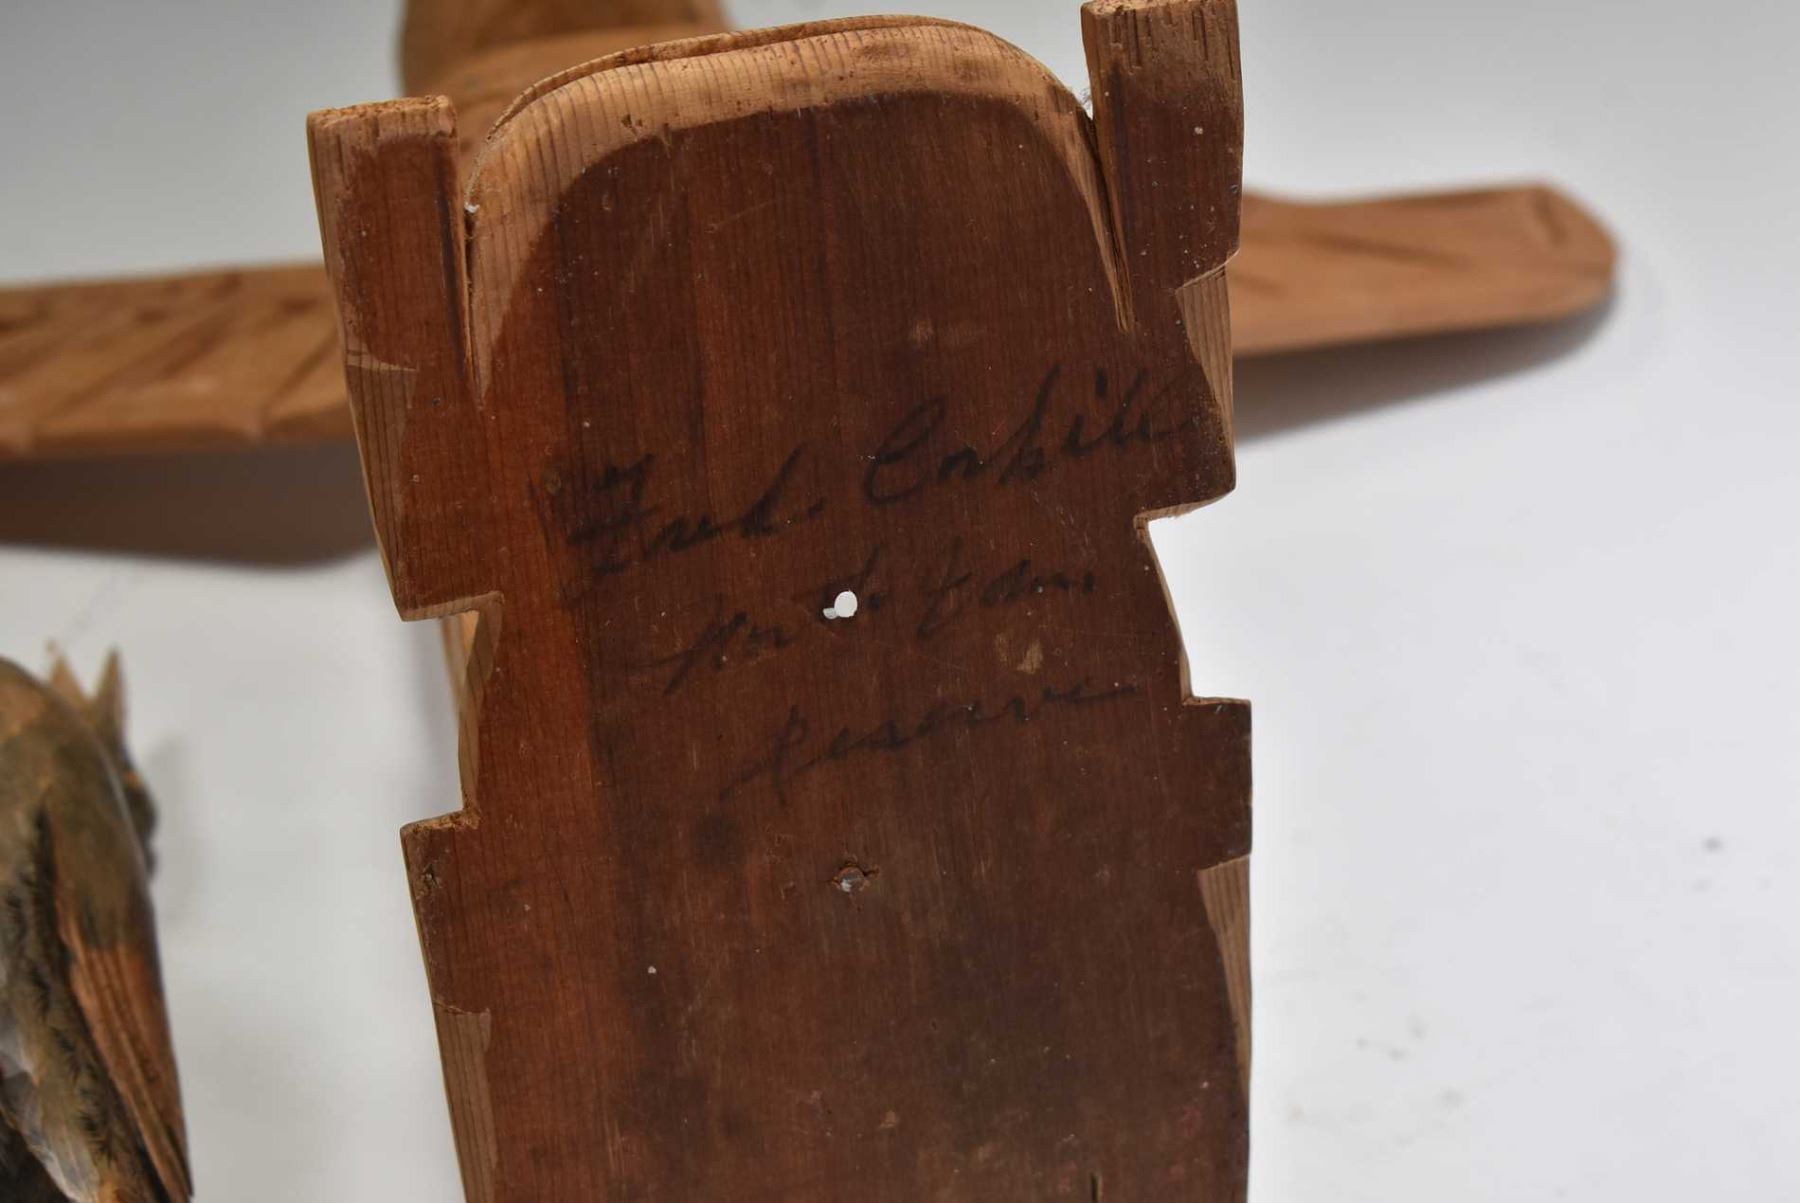 Fred. Cahill
Nor t. Van.
Reserve